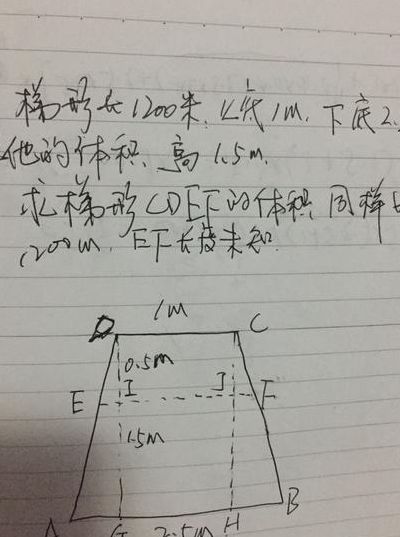 梯形长1200米.上底1M.下底2.
他的体积.高1.5m.
求梯形CDEF的体积 同样
1200m.EF长度未知.
1M
D
C
0.5m
E
I
J
F
1.5m
B
A
G
2.5m
H